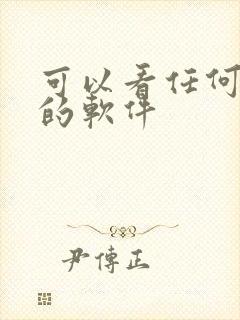 可以看任何
的軟件
尹傳正